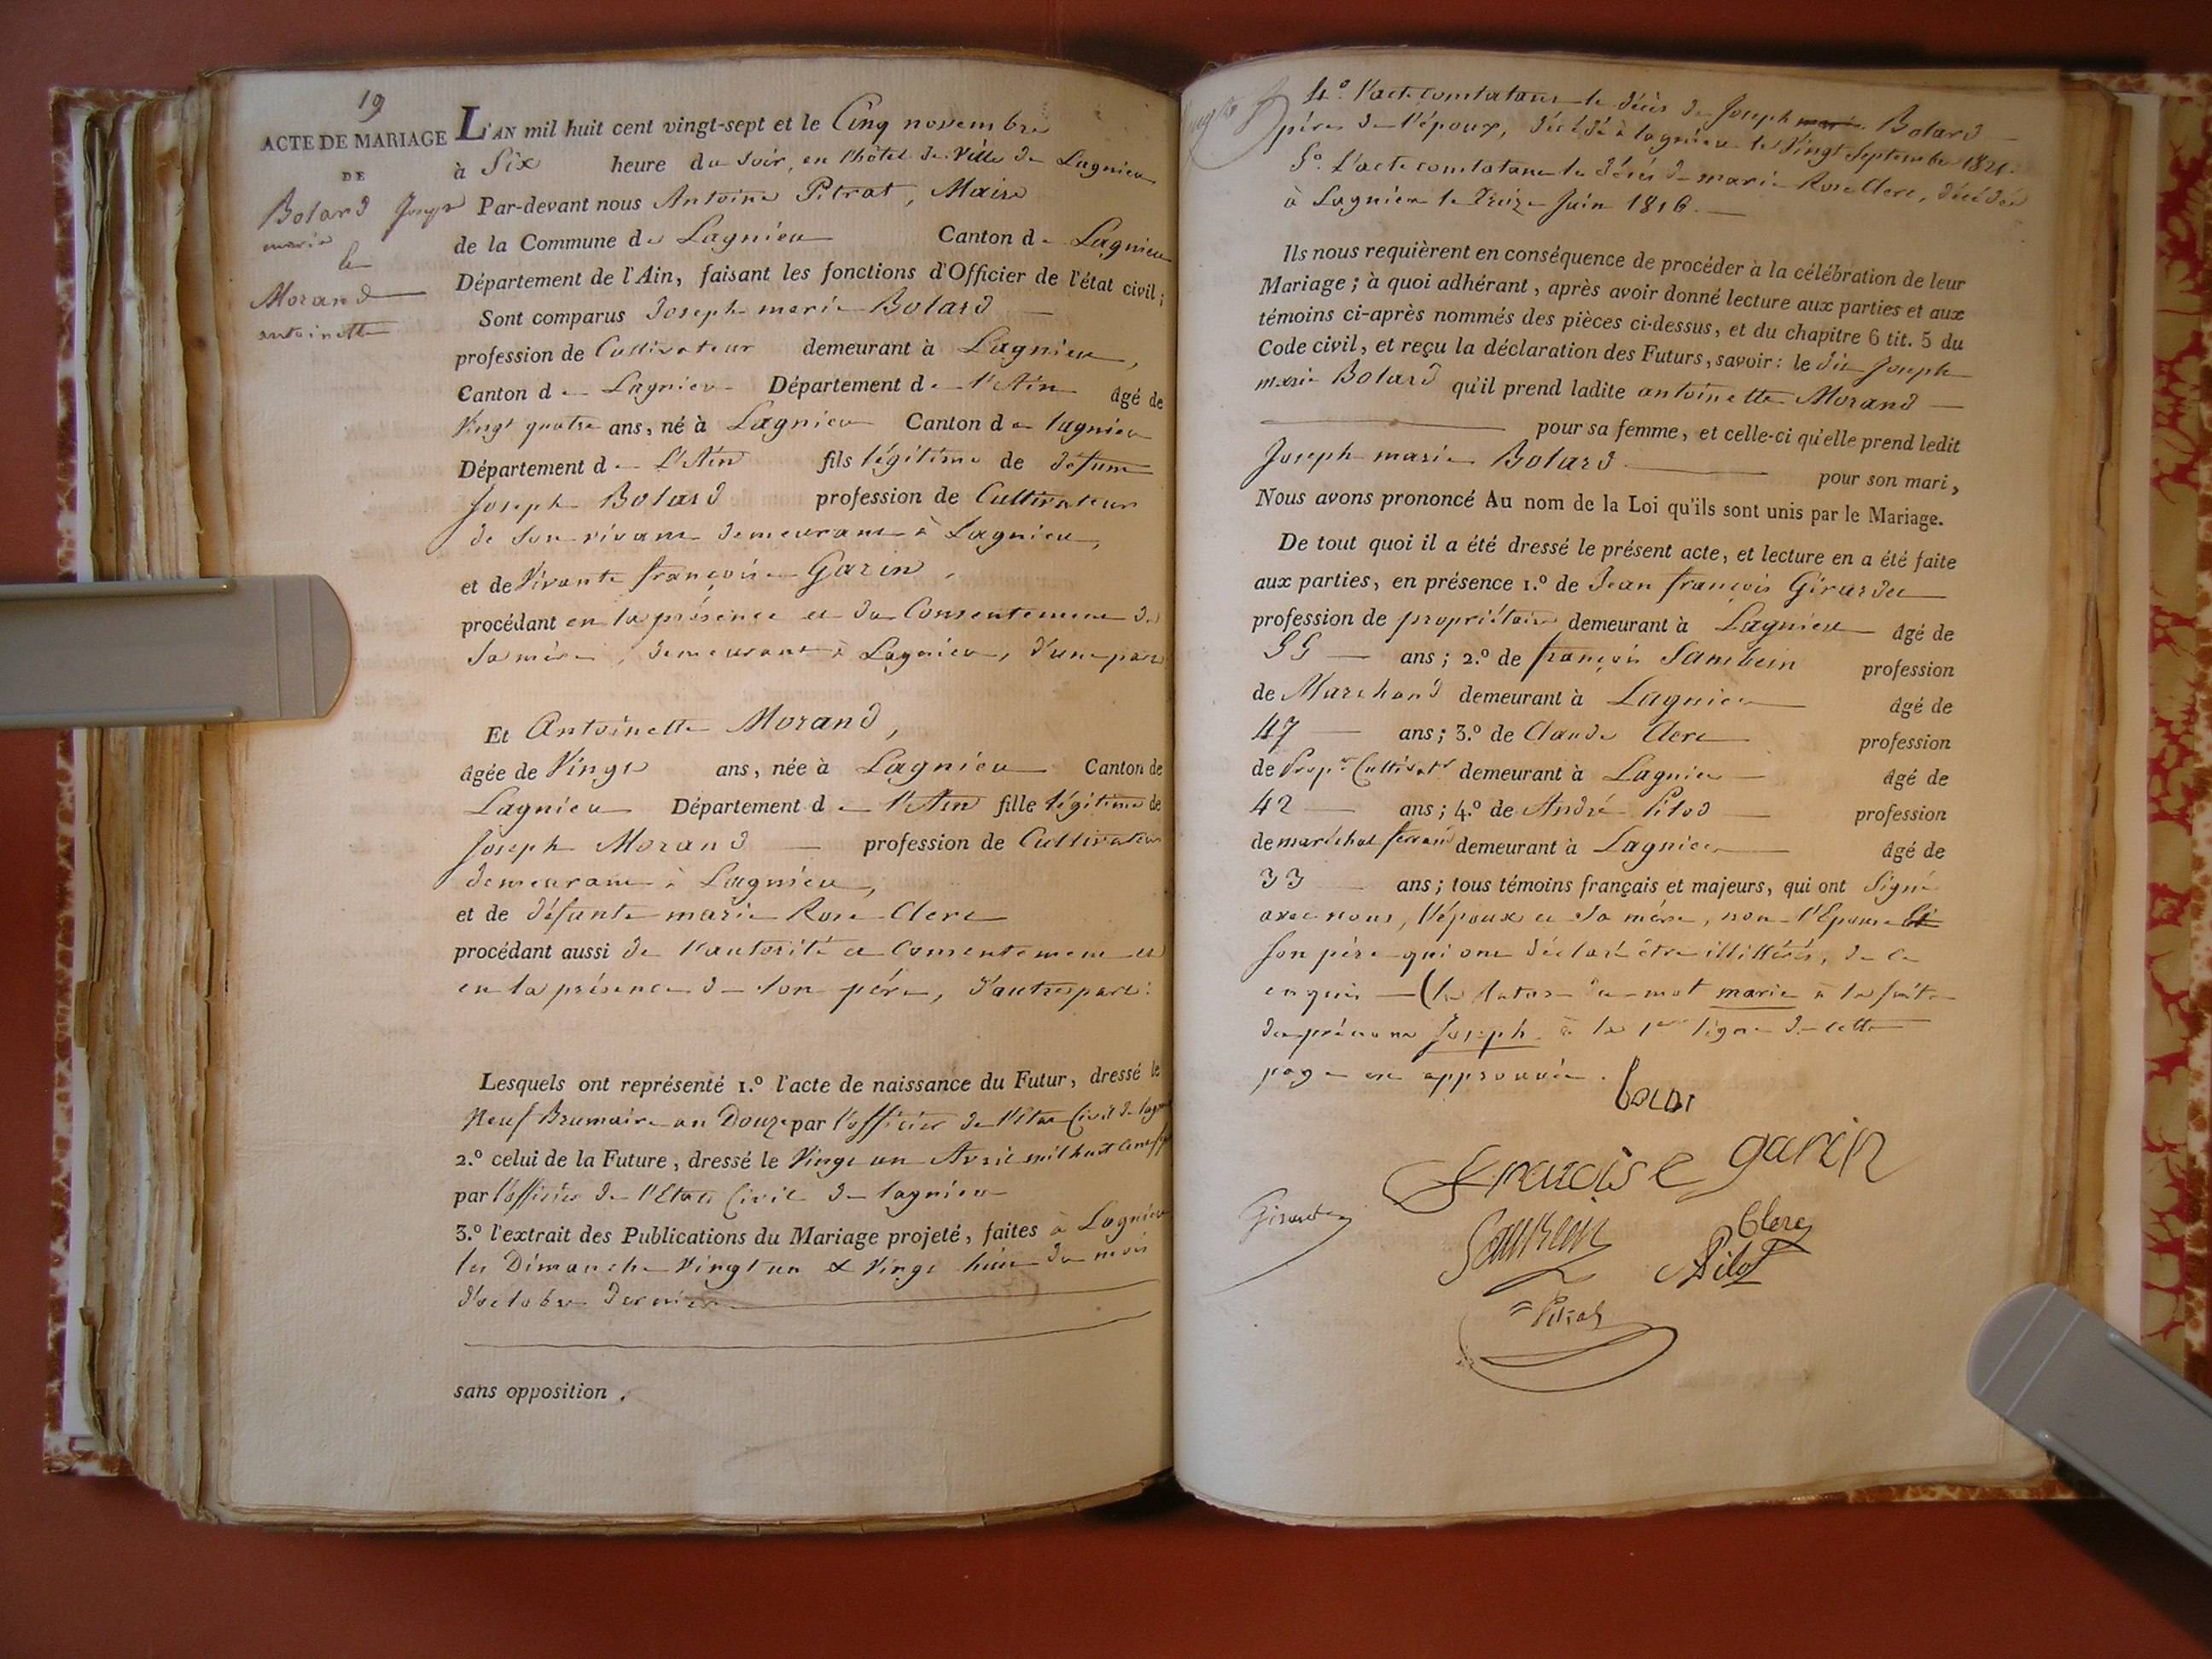 19
ACTE DE MARIAGE
DE
Bolard Joseph
marie
et
Morand
antoinette
L'AN mil huit cent vingt-sept et le Cinq novembre
à Six heure du soir, en l'hôtel de Ville de Lagnieu
Par-devant nous Antoine Pitrat, Maire
de la Commune de Lagnieu Canton de Lagnieu
Département de l'Ain, faisant les fonctions d'Officier de l'état civil;
Sont comparus Joseph marie Bolard
profession de Cultivateur demeurant à Lagnieu,
Canton de Lagnieu Département de l'Ain âgé de
Vingt quatre ans, né à Lagnieu Canton de lagnieu
Département de L'Ain fils légitime de défunt
Joseph Bolard profession de Cultivateur
de son vivant demeurant à Lagnieu,
et de Vivante françoise Garin,
procédant en la présence et du Consentement de
sa mère, demeurant à Lagnieu, d'une part
Et Antoinette Morand,
âgée de Vingt ans, née à Lagnieu Canton de
Lagnieu Département de l'Ain fille légitime de
Joseph Morand profession de Cultivateur
demeurant à Lagnieu,
et de défunte marie Rose Clerc
procédant aussi de l'autorité et Consentement et
en la présence de son père, d'autre part.
Lesquels ont représenté 1.º l'acte de naissance du Futur, dressé le
Neuf Brumaire an Douze par l'officier de l'Etat Civil de
2.º celui de la Future, dressé le Vingt un Avril mil huit cent
par l'officier de l'Etat Civil de lagnieu
3.º l'extrait des Publications du Mariage projeté, faites à Lagnieu
les Dimanche Vingt un & Vingt huit du mois
d'octobre dernier
sans opposition.
4.º l'acte constatant le décès de Joseph marie Bolard
père de l'époux, décédé à lagnieu le Vingt Septembre 1821.
5.º L'acte constatant le décès de marie Rose Clerc, décédée
à Lagnieu le Treize Juin 1816.
Ils nous requièrent en conséquence de procéder à la célébration de leur
Mariage; à quoi adhérant, après avoir donné lecture aux parties et aux
témoins ci-après nommés des pièces ci-dessus, et du chapitre 6 tit. 5 du
Code civil, et reçu la déclaration des Futurs, savoir: le dit Joseph
marie Bolard qu'il prend ladite antoinette Morand
pour sa femme, et celle-ci qu'elle prend ledit
Joseph marie Bolard pour son mari,
Nous avons prononcé Au nom de la Loi qu'ils sont unis par le Mariage.
De tout quoi il a été dressé le présent acte, et lecture en a été faite
aux parties, en présence 1.º de Jean françois Girardet
profession de propriétaire demeurant à Lagnieu âgé de
55 ans; 2.º de françois Sambein profession
de Marchand demeurant à Lagnieu âgé de
47 ans; 3.º de Claude Clerc profession
de Propre Cultivatr demeurant à Lagnieu âgé de
42 ans; 4.º de André Pilod profession
de maréchal ferrant demeurant à Lagnieu âgé de
33 ans; tous témoins français et majeurs, qui ont Signé
avec nous, l'époux et sa mère, non l'Epouse et
son père qui ont déclaré être illitérés, de ce
enquis (la rature du mot marie à la suite
du prénom Joseph à la 1ere ligne de cette
page est approuvée.
francoise garin
Girardet
Clerc
Pilod
Pitrat